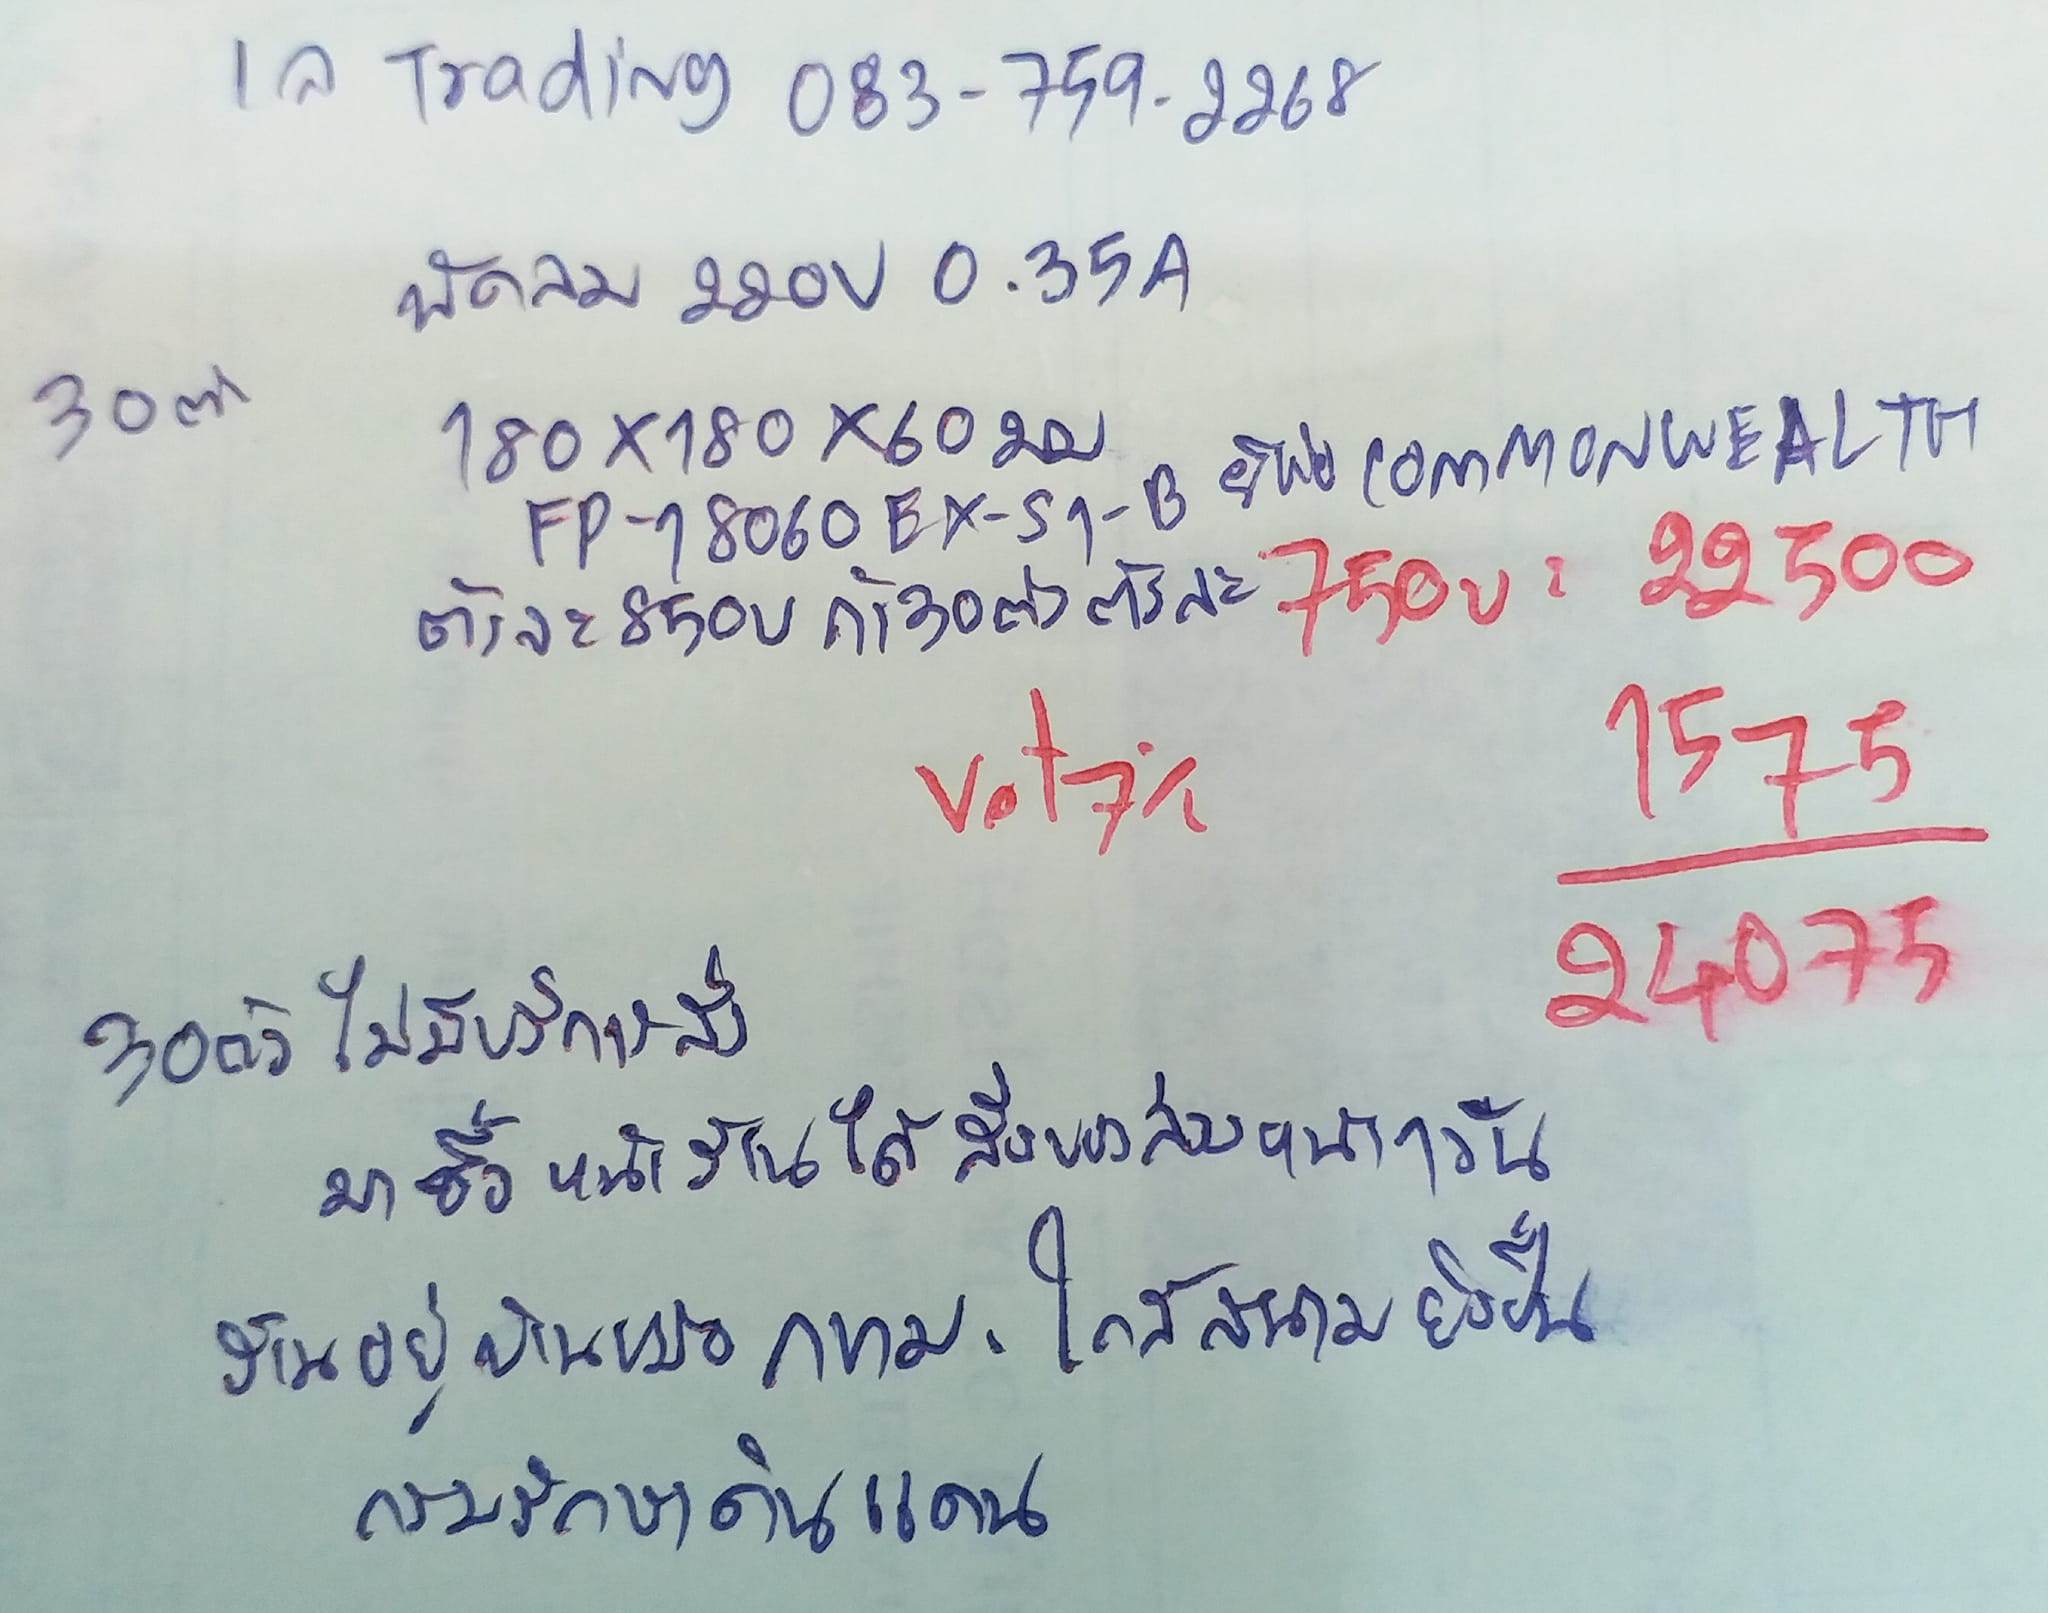 เอ Trading 083-759-2268
พัดลม 220V 0.35A
30ตัว
180X180X60มม
FP-18060EX-S1-B ยี่ห้อ COMMONWEALTH
ตัวละ 850บ ถ้า30ตัว ตัวละ 750บ = 22500
Vat7% 1575
24075
30ตัว ไม่มีบริการส่ง
มาซื้อหน้าร้านได้ สั่งของล่วงหน้า1วัน
ร้านอยู่บ้านหม้อ กทม. ใกล้สนามยิงปืน
กรมรักษาดินแดน